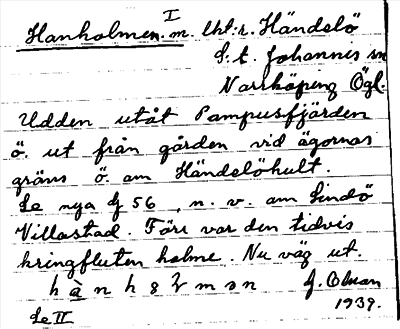 I
Hanholmen. m. lht: r. Händelö
S:t Johannis sn
Norrköping Ögl.
Udden utåt Pampusfjärden
ö. ut från gården vid ägornas
gräns ö. om Händelöhult.
Se nya f 56, n. v. om Lindö
Villastad. Förr var den tidvis
kringfluten holme. Nu väg ut.
h à n h m ə n
1939.
Se II